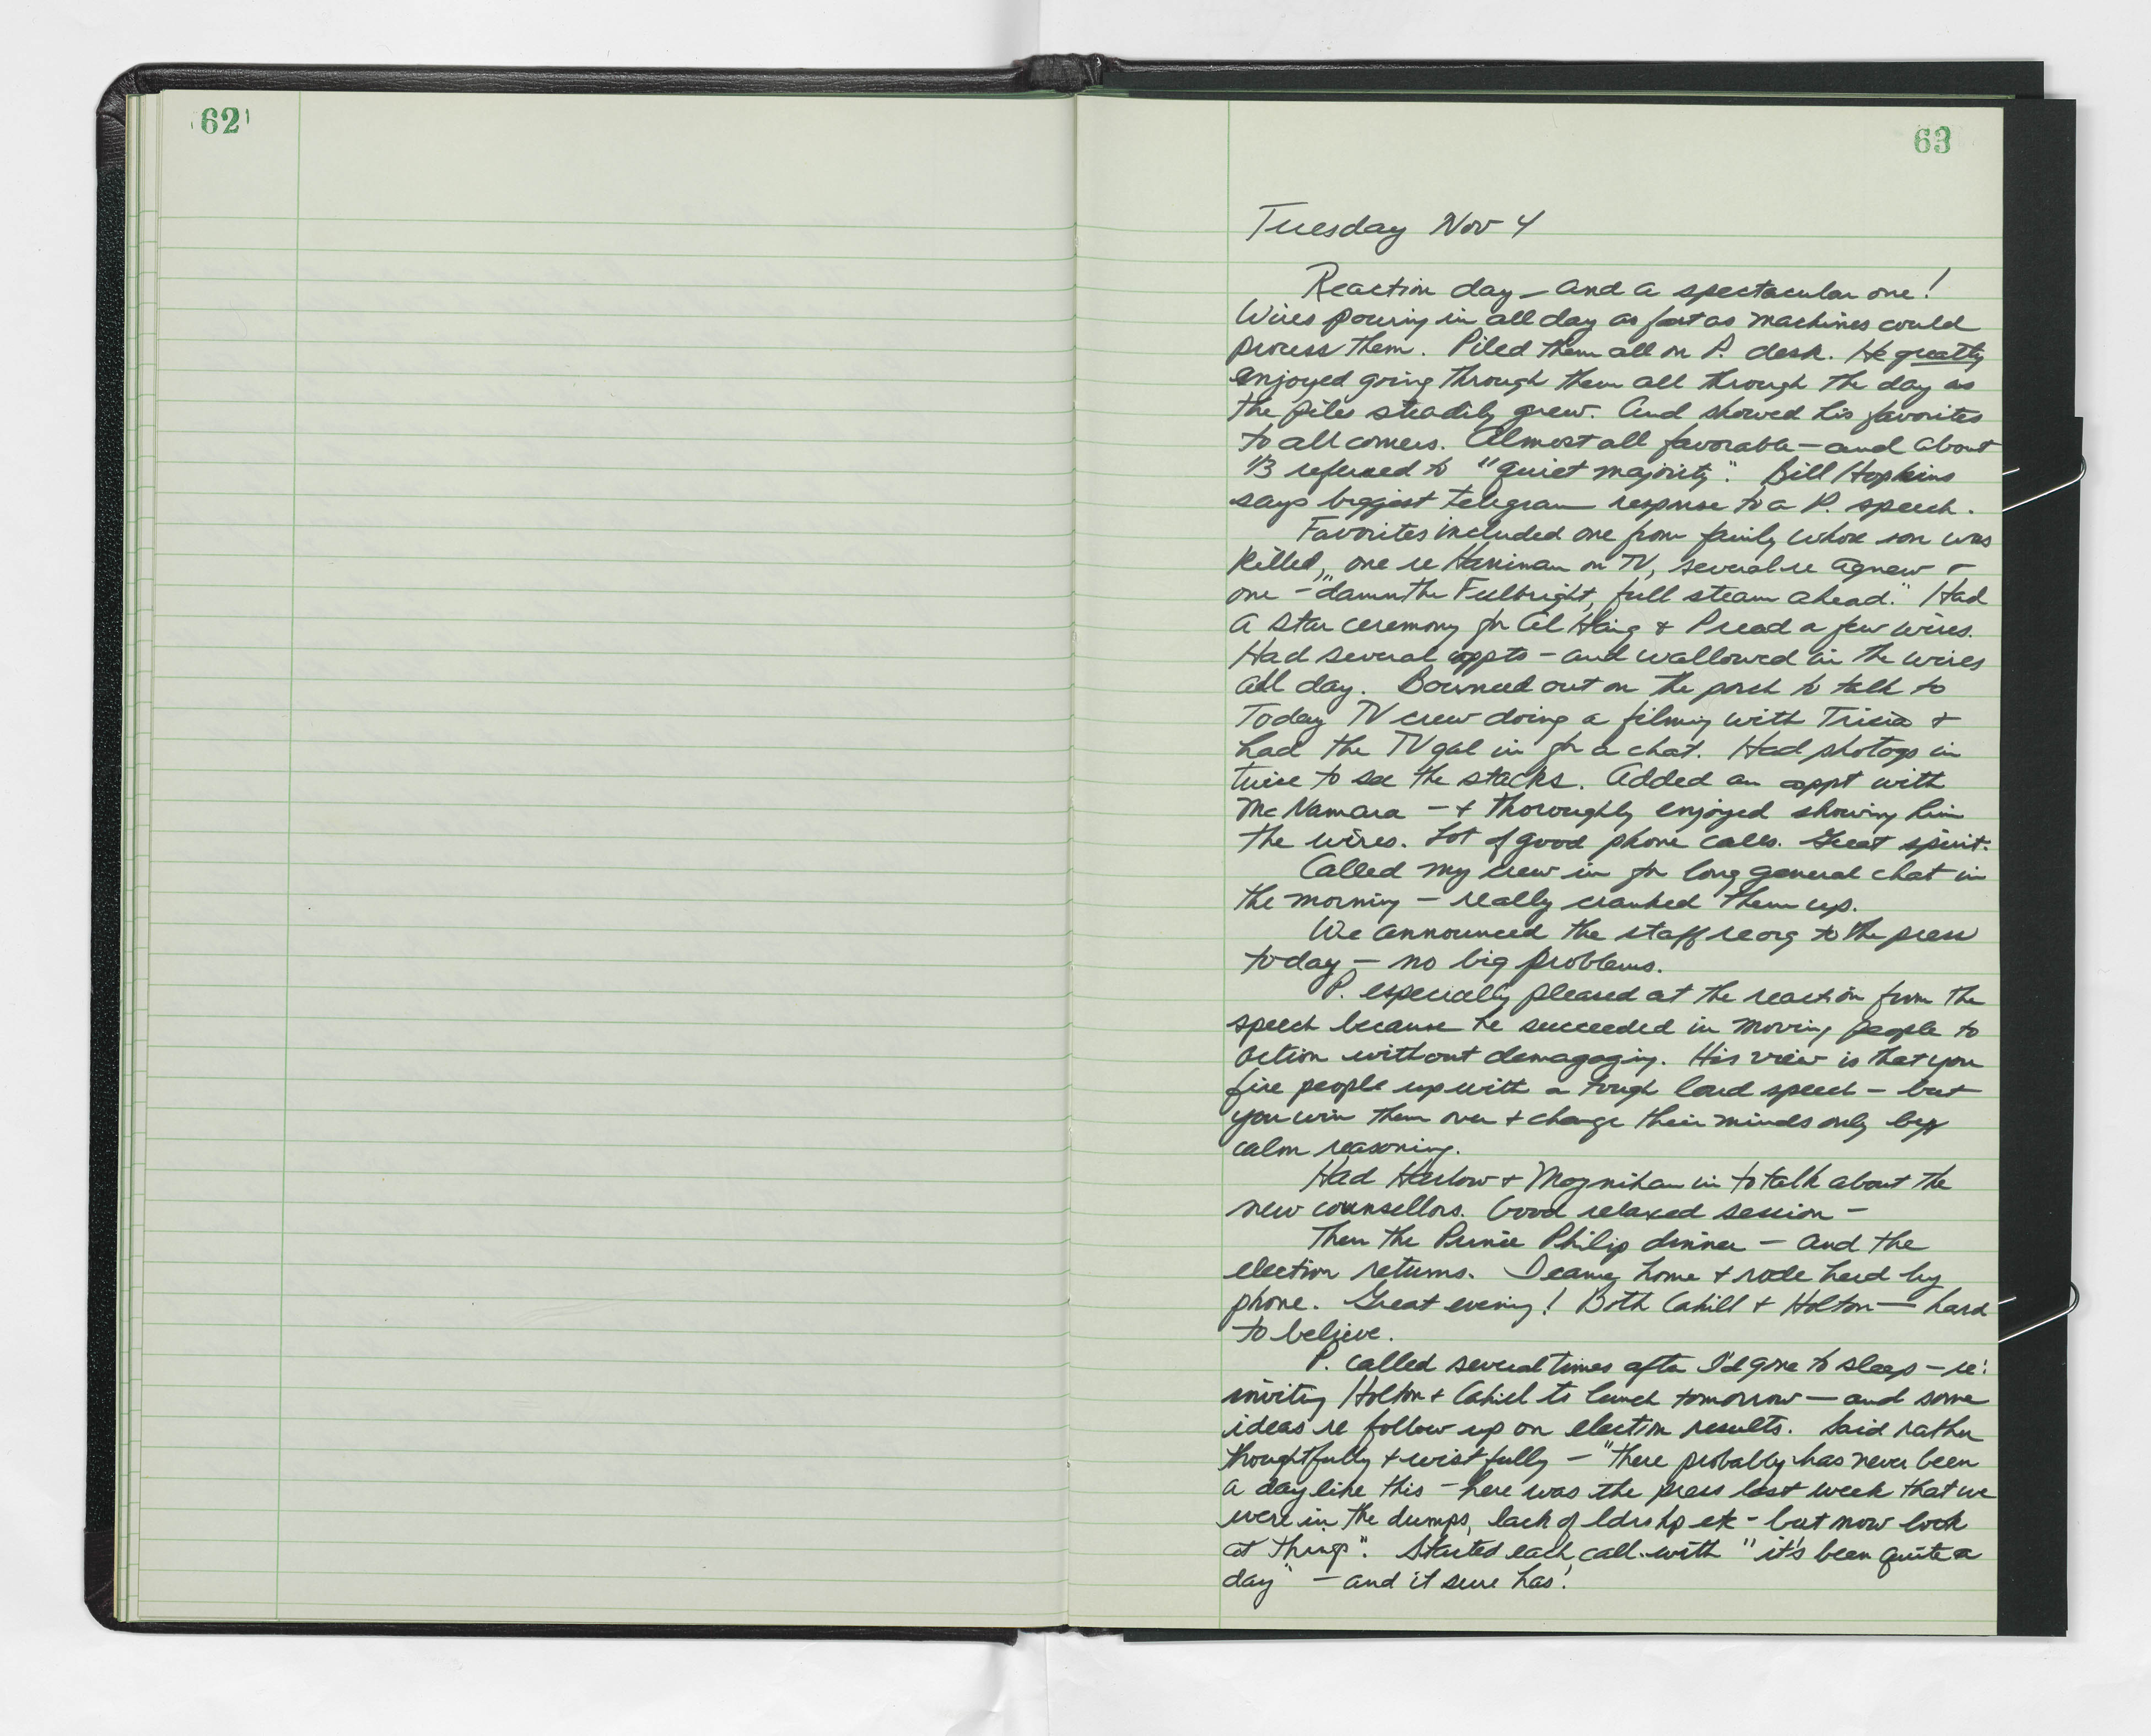 62
63
Tuesday Nov 4
Reaction day – and a spectacular one!
Wires pouring in all day as fast as machines could
process them. Piled them all on P. desk. He greatly
enjoyed going through them all through the day as
the piles steadily grew. And showed his favorites
to all comers. Almost all favorable – and about
1/3 referred to "quiet majority". Bill Hopkins
says biggest telegram response to a P. speech.
Favorites included one from family whose son was
killed, one re Harriman on TV, several re Agnew &
one – "damn the Fulbright, full steam ahead." Had
a star ceremony for Al Haig & P read a few wires.
Had several appts – and wallowed in the wires
all day. Bounced out on the porch to talk to
Today TV crew doing a filming with Tricia &
had the TV gal in for a chat. Had photogs in
twice to see the stacks. Added an appt with
McNamara – & thoroughly enjoyed showing him
the wires. Lot of good phone calls. Great spirit.
Called my crew in for long general chat in
the morning – really cranked them up.
We announced the staff reorg to the press
today – no big problems.
P. especially pleased at the reaction from the
speech because he succeeded in moving people to
action without demagoging. His view is that you
fire people up with a tough loud speech – but
you win them over & change their minds only by
calm reasoning.
Had Harlow & Moynihan in to talk about the
new counsellors. Good relaxed session –
Then the Prince Philip dinner – and the
election returns. I came home & rode herd by
phone. Great evening! Both Cahill & Holton – hard
to believe.
P. called several times after I'd gone to sleep – re:
inviting Holton & Cahill to lunch tomorrow – and some
ideas re follow up on election results. Said rather
thoughtfully & wistfully – "there probably has never been
a day like this – here was the press last week that we
were in the dumps, lack of ldrshp etc – but now look
at things". Started each call with "it's been quite a
day" – and it sure has!